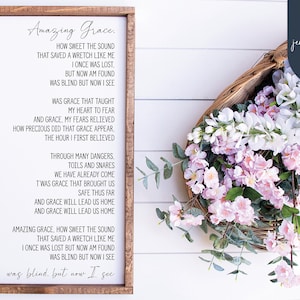 Amazing Grace,
HOW SWEET THE SOUND
THAT SAVED A WRETCH LIKE ME
I ONCE WAS LOST,
BUT NOW AM FOUND
WAS BLIND BUT NOW I SEE
WAS GRACE THAT TAUGHT
MY HEART TO FEAR
AND GRACE, MY FEARS RELIEVED
HOW PRECIOUS DID THAT GRACE APPEAR,
THE HOUR I FIRST BELIEVED
THROUGH MANY DANGERS,
TOILS AND SNARES
WE HAVE ALREADY COME
T'WAS GRACE THAT BROUGHT US
SAFE THUS FAR
AND GRACE WILL LEAD US HOME
AND GRACE WILL LEAD US HOME
AMAZING GRACE, HOW SWEET THE SOUND
THAT SAVED A WRETCH LIKE ME
I ONCE WAS LOST BUT NOW AM FOUND
WAS BLIND BUT NOW I SEE
was blind, but now I see